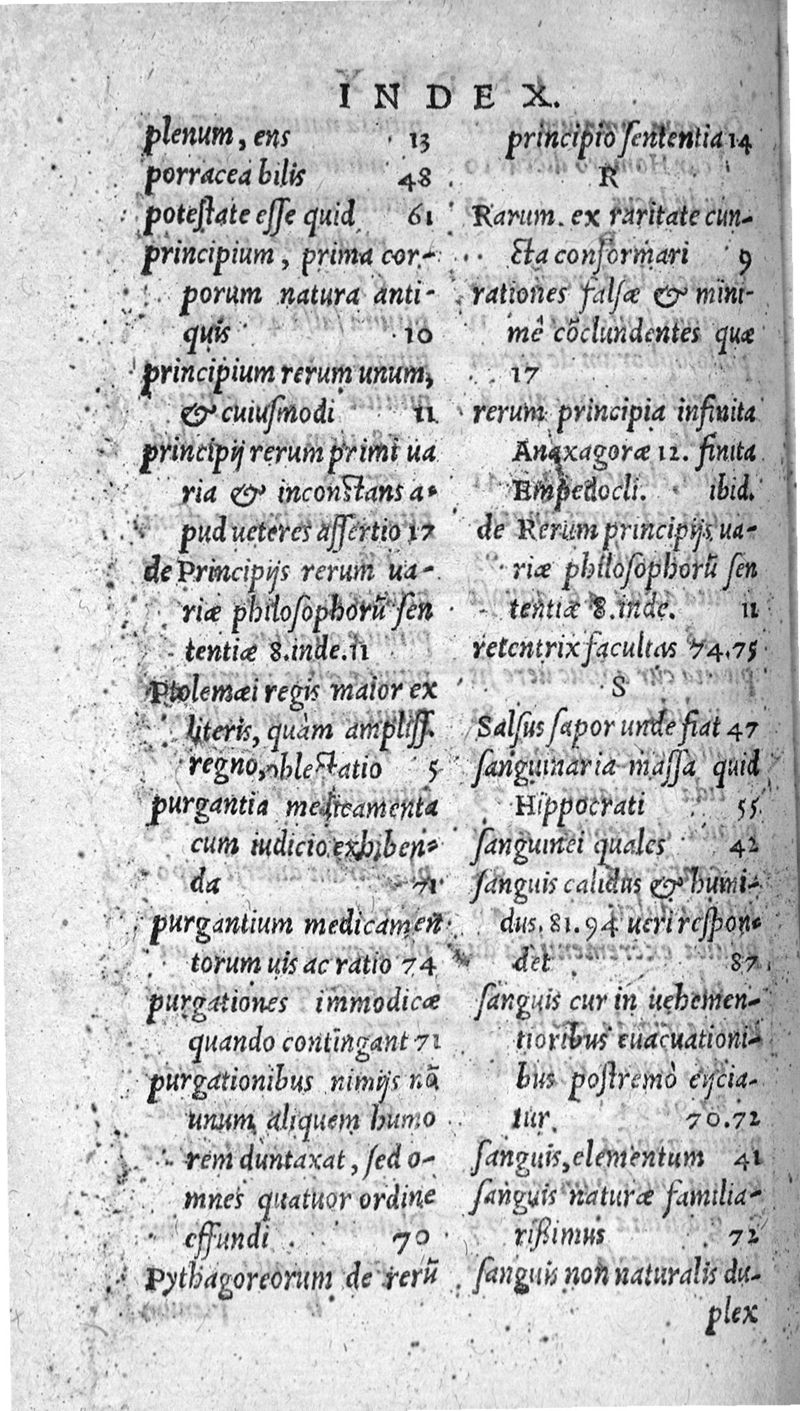 INDEX.
plenum, ens 13
porracea bilis 48
poteſtate eſſe quid 61
principium, prima cor-
porum natura anti-
quis 10
principium rerum unum,
& cuiuſmodi 11
principij rerum primi ua
ria & inconſtans a-
pud ueteres aſſertio 17
de Principijs rerum ua-
riæ philoſophorũ ſen
tentiæ 8.inde.11
Ptolemæi regis maior ex
literis, quàm ampliſſ.
regno, oblectatio 5
purgantia medicamenta
cum iudicio exhiben-
da 71
purgantium medicamen
torum uis ac ratio 74
purgationes immodicæ
quando contingant 71
purgationibus nimijs nõ
unum aliquem humo
rem duntaxat, ſed o-
mnes quatuor ordine
effundi 70
Pythagoreorum de rerũ
principio ſententia 14
R
Rarum. ex raritate cun-
cta conformari 9
rationes falſæ & mini-
mè cõcludentes quæ
17
rerum principia infinita
Anaxagoræ 12. finita
Empedocli. ibid.
de Rerum principijs ua-
riæ philoſophorũ ſen
tentiæ 8.inde. 11
retentrix facultas 74.75
S
Salſus ſapor unde fiat 47
ſanguinaria maſſa quid
Hippocrati 55
ſanguinei quales 42
ſanguis calidus & humi-
dus. 81.94 ueri reſpon-
det 87
ſanguis cur in uehemen-
tioribus euacuationi-
bus poſtremò eijcia-
tur. 70.72
ſanguis, elementum 41
ſanguis naturæ familia-
riſſimus 72
ſanguis non naturalis du-
plex